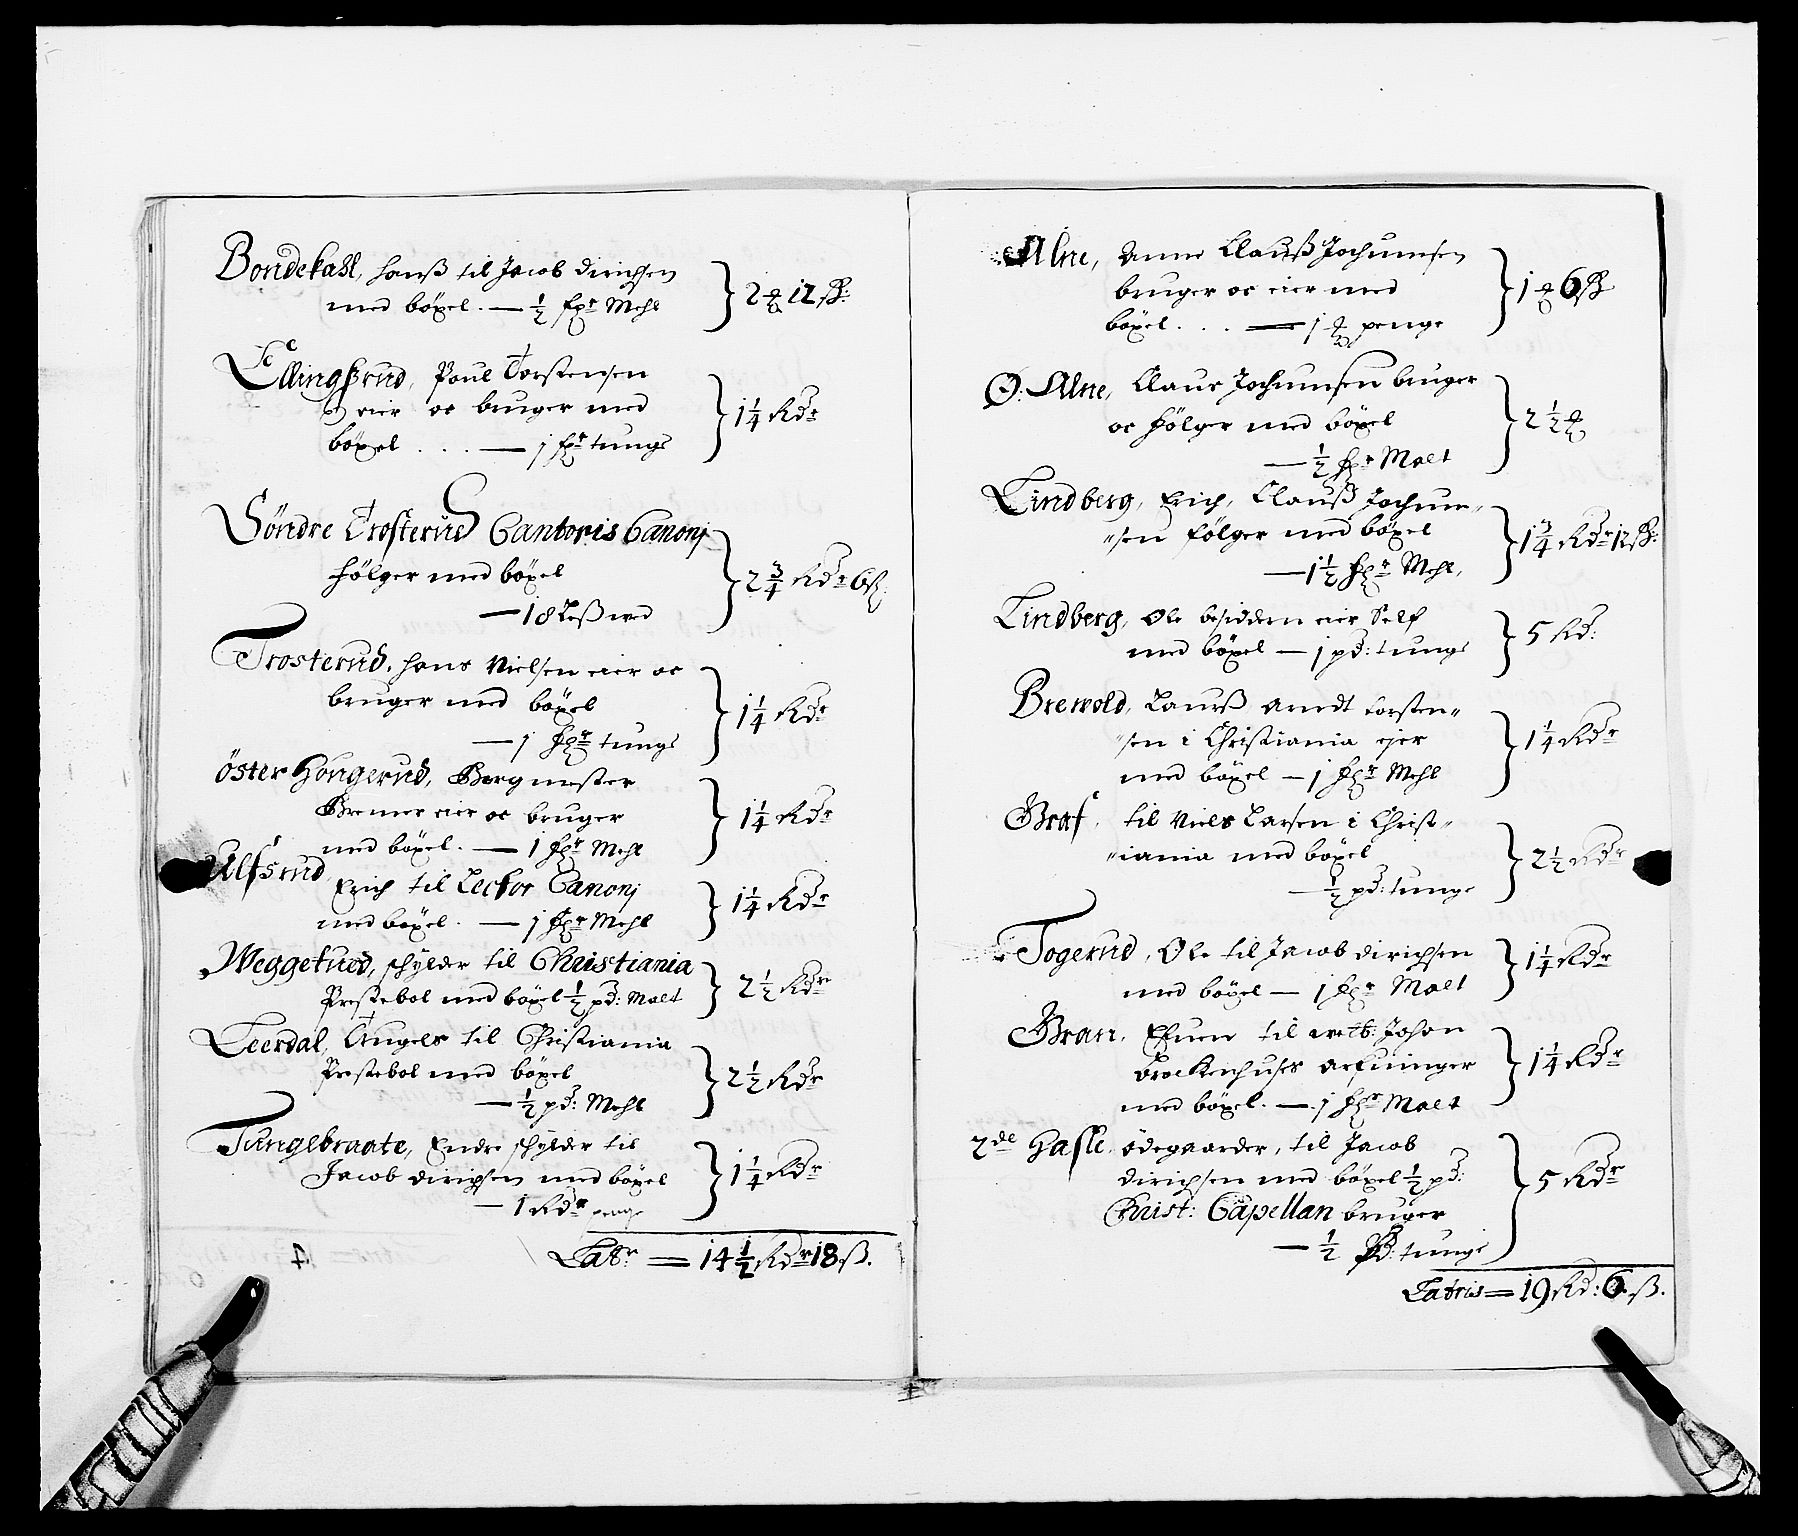 Bondekall, hanß til Jacob dirichsen
med böxel. — ½ frr Mehl } 2 12 sk:
Ellingsrud, Poul Torstensen
eier oc bruger med
böxel . . . — 1 frr tunge } 1¼ Rdr
Söndre Trosterud Cantoris Canonj
følger med böxel
— 18 Leß wed } 2¾ Rdr 6 sk:
Trosterud, hans Nielsen eier oc
bruger med böxel
— 1 frr tunge } 1¼ Rdr
öster Hougerud, Borgmester
Bremer eier oc bruger
med böxel. — 1 frr Mehl } 1¼ Rdr
Ulfsrud, Erich til Lector Canonj
med böxel. — 1 frr Mehl } 1¼ Rdr
Weggetued, schylder til Christiania
Prestebol med böxel ½ pd: Malt } 2½ Rdr
Leerdal, Engels til Christiania
Prestebol med böxel
— ½ pd: Mehl } 2½ Rdr
Tungebraate, Endre schylder til
Jacob dirichsen med böxel
— 1 Rdr penge } 1¼ Rdr
Latr = 14½ Rdr 18 ß.
4
Alne, Anne Clauß Jochumsen
bruger oc eier med
böxel . . . — 1 penge } 1 6 sk
Ø: Alne, Claus Jochumsen bruger
oc følger med böxel
— ½ frr Malt } 2½
Lindberg, Erich, Clauß Jochum„
„sen følger med böxel
— 1½ frr Mehl, } 1¾ Rdr 12 sk:
Lindberg, Ole besidden eier Self
med böxel — 1 pd: tunge } 5 Rd:
Brewold, Lauriß Arndt torsten„
„sen i Christiania ejer
med böxel — 1 frr Mehl } 1¼ Rdr
Braf, til Niels Larsen i Christ„
„iania med böxel
— ½ pd: tunge } 2½ Rdr
Togerud, Ole til Jacob dirichsen
med böxel — 1 frr Malt } 1¼ Rdr
Bran, Efuen til Johan
Brockenhuses arfuinger
med böxel. — 1 frr Malt } 1¼ Rdr
2de Hasle, ödegaarder, til Jacob
dirichsen med böxel ½ pd:
Christ: Capellan bruger
— ½ Pd: tunge } 5 Rdr
Latris = 19 Rd: 6 ß.